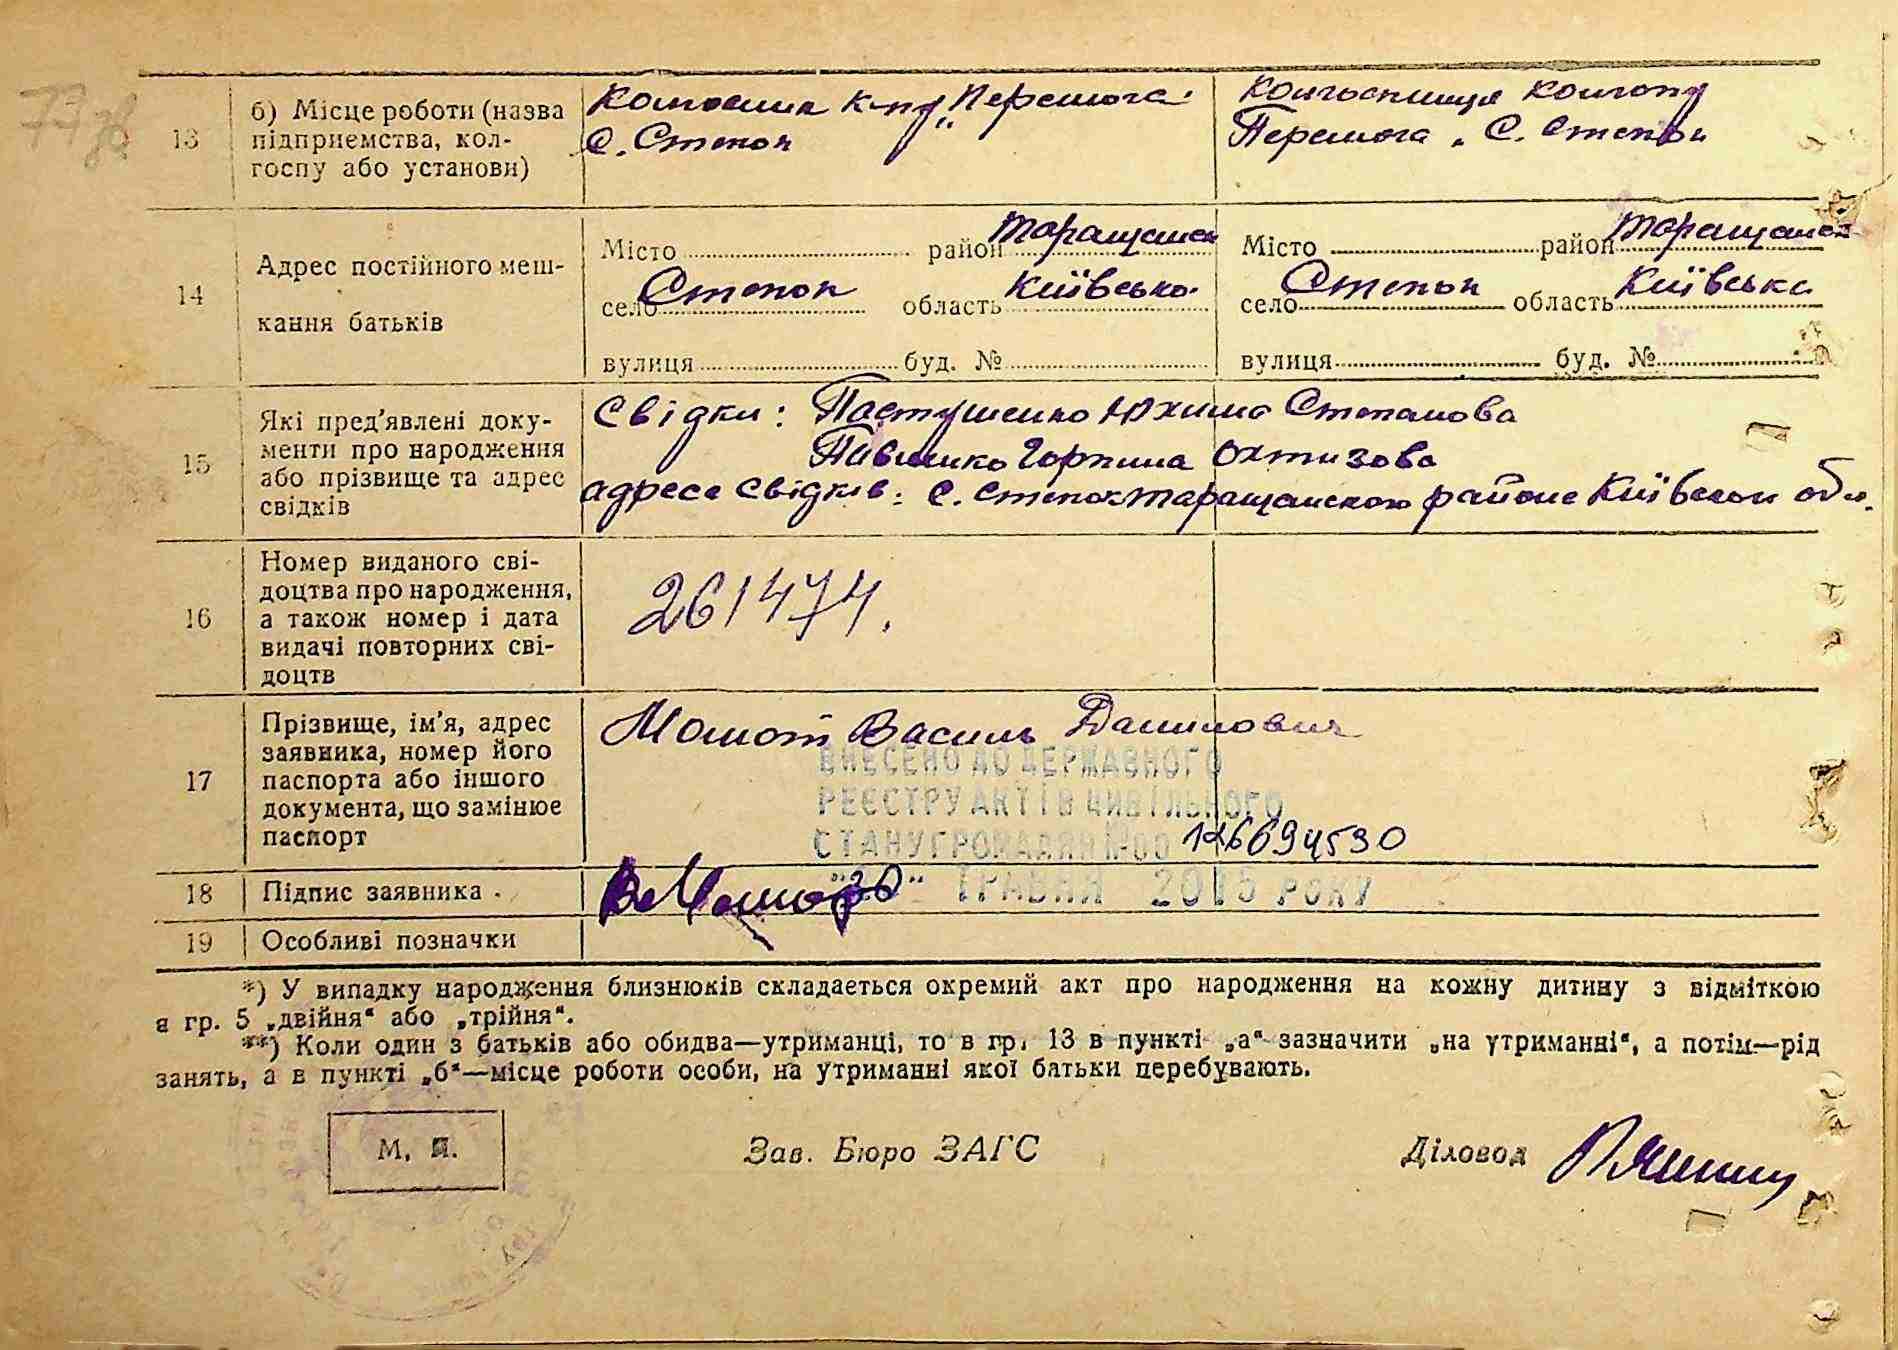 77 зв
13
б) Місце роботи (назва
підприемства, кол-
госпу або установи)
к-пу „Перемога"
С. Степок
Колгоспниця колгоспу
Перемога " С. Степок
14
Адрес постійного меш-
кання батьків
Місто район Таращанск
село Степок область Київсько
вулиця буд. №
Місто район Таращанск
село Степок область Київська
вулиця буд. №
15
Які пред'явлені доку-
менти про народження
або прізвище та адрес
свідків
Свідки: Пастушенко Юхима Степанова
Горпина Охтизова
адреса свідків: С. Степок Таращанского района Київскои обл.
16
Номер виданого сві-
доцтва про народження,
а також номер і дата
видачі повторних сві-
доцтв
261474.
17
Прізвище, ім'я, адрес
заявника, номер його
паспорта або іншого
документа, що замінює
паспорт
Момот Василь Данилович
ВНЕСЕНО ДО ДЕРЖАВНОГО
РЕЄСТРУ АКТІВ ЦИВІЛЬНОГО
СТАНУ ГРОМАДЯН №00 126694530
"20" ТРАВНЯ 2015 РОКУ
18 Підпис заявника
19 Особливі позначки
*) У випадку народження близнюків складаеться окремий акт про народження на кожну дитину з відміткою
в гр. 5 „двійня“ або „трійня“.
**) Коли один з батьків або обидва—утриманці, то в гр. 13 в пункті „а“ зазначити „на утриманні“, а потім—рід
занять, а в пункті „б“—місце роботи особи, на утриманні якої батьки перебувають.
М. П.
Зав. Бюро ЗАГС
Діловод